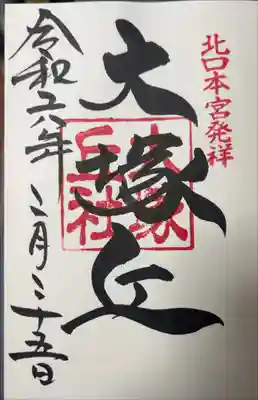 北口本宮発祥
大塚丘
大塚丘社
令和六年二月二十五日